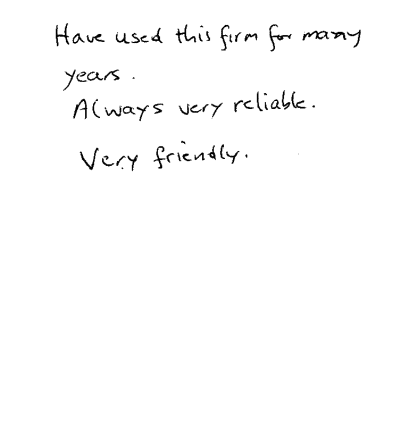 Have used this firm for many
years.
Always very reliable.
Very friendly.